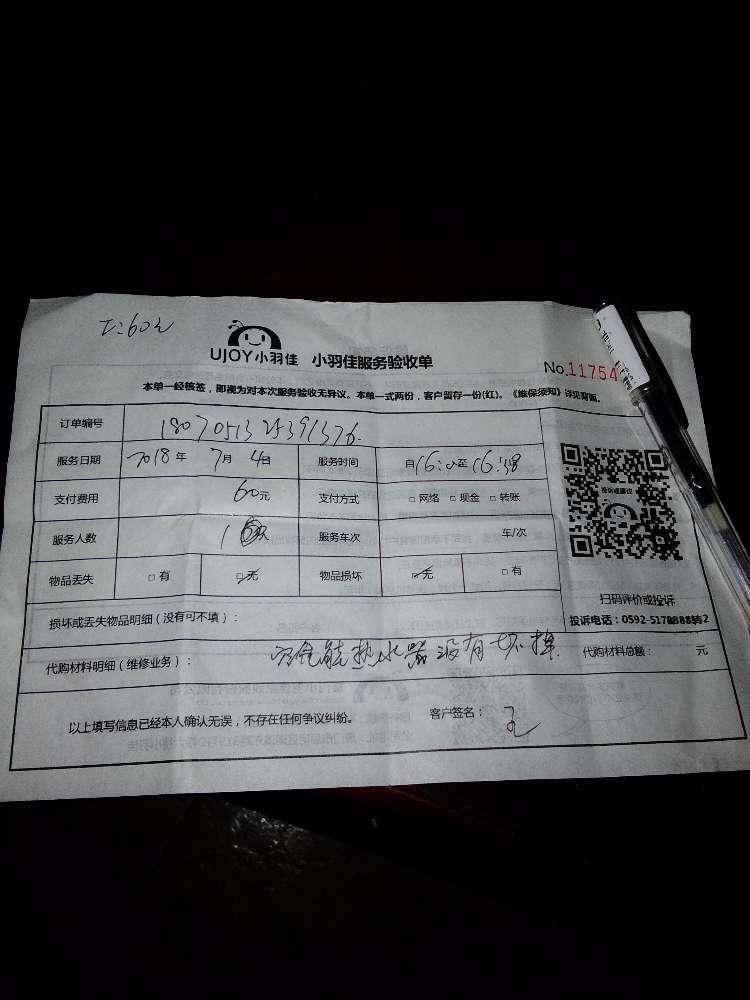 工:60元
UJOY小羽佳 小羽佳服务验收单
No.11754
本单一经核签，即视为对本次服务验收无异议。本单一式两份，客户留存一份(红)。《维保须知》详见背面。
订单编号 1807051325391376.
服务日期 2018年 7月 4日 服务时间 自16:0至16:38
支付费用 60元 支付方式 □网络 □现金 □转账
服务人数 1 服务车次 车/次
物品丢失 □有 □无 物品损坏 □无 □有
投诉或建议
扫码评价或投诉
投诉电话：0592-5178888转2
损坏或丢失物品明细（没有可不填）：
代购材料明细（维修业务）： 热水器没有坏掉. 代购材料总额： 元
以上填写信息已经本人确认无误，不存在任何争议纠纷。 客户签名： 王